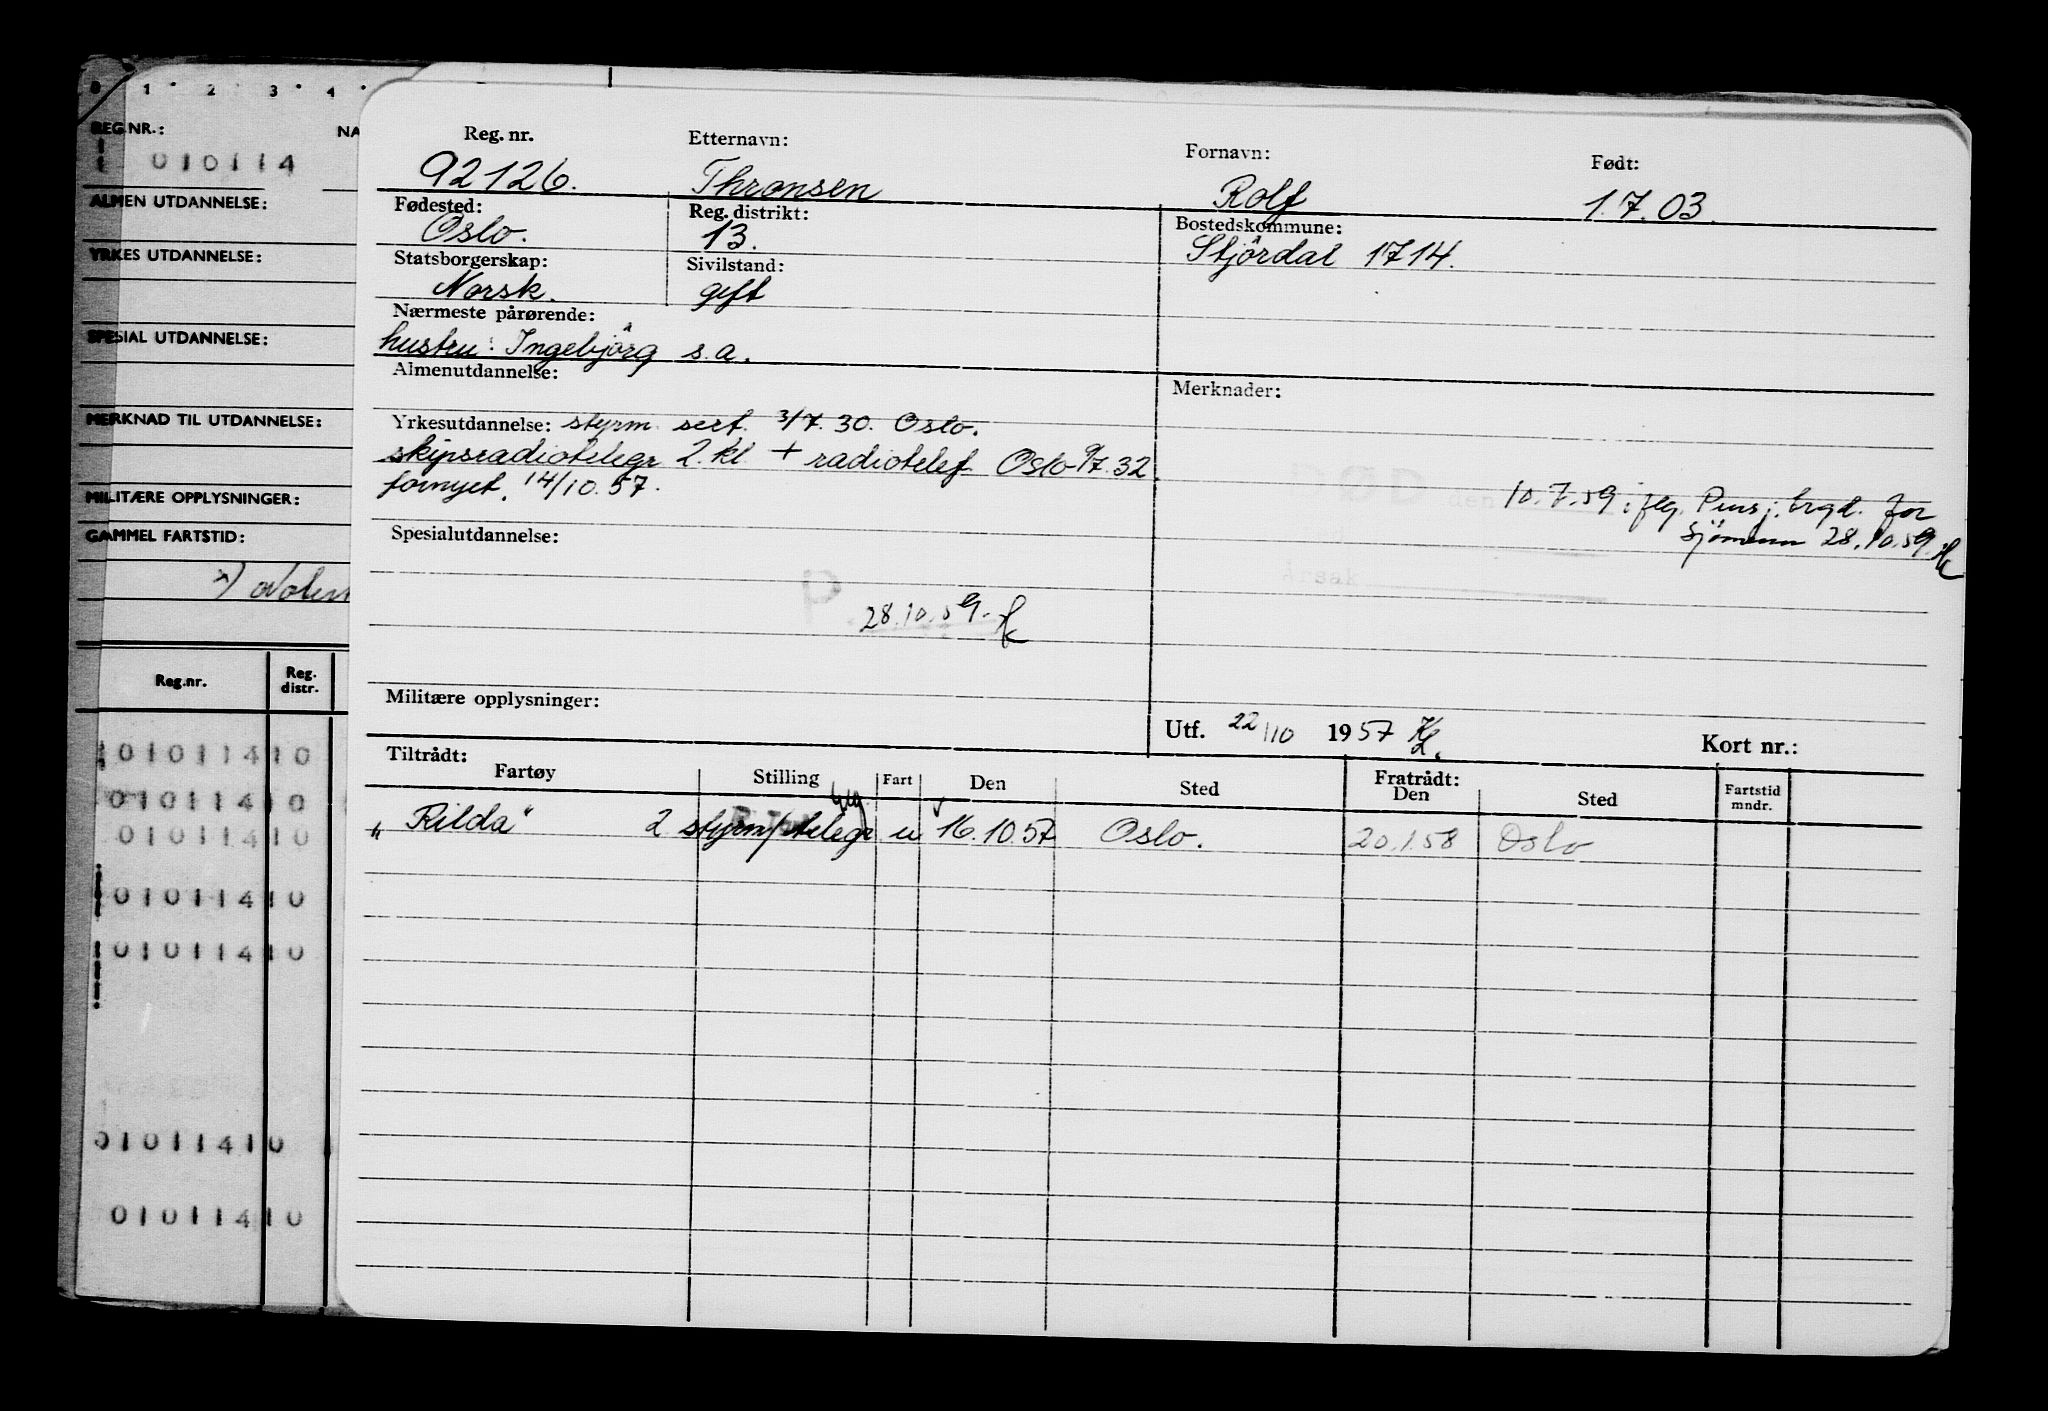 0 1 2 3 4
REG.NR.: NA
010114
ALMEN UTDANNELSE:
YRKES UTDANNELSE:
SPESIAL UTDANNELSE:
MERKNAD TIL UTDANNELSE:
MILITÆRE OPPLYSNINGER:
GAMMEL FARTSTID:
Reg.nr. Reg. distr.
010114 10
010114 10
010114 10
010114 10
010114 10
010114 10
010114 10
Reg. nr. Etternavn: Fornavn: Født:
92126. Thronsen Rolf 1.7.03.
Fødested: Reg. distrikt: Bostedskommune:
Oslo. 13. Stjördal 1714.
Statsborgerskap: Sivilstand:
Norsk. gift
Nærmeste pårørende:
hustru: Ingebjörg s.a.
Almenutdannelse: Merknader:
Yrkesutdannelse: styrm. sert. 3/7.30. Oslo.
skipsradiotelegr 2.kl. + radiotelef Oslo 9/7.32.
fornyet. 14/10.57.
DØD den 10.7.59 : flg. Pensj. trygd. for
Sjömenn 28.10.59.
Spesialutdannelse:
Årsak
P
28.10.59.
Militære opplysninger:
Utf. 22/10 1957 Kort nr.:
Tiltrådt: Fratrådt:
Fartøy Stilling Fart Den Sted Den Sted Fartstid mndr.
"Rilda" 2 styrm/telegr u 16.10.57 Oslo. 20.1.58 Oslo